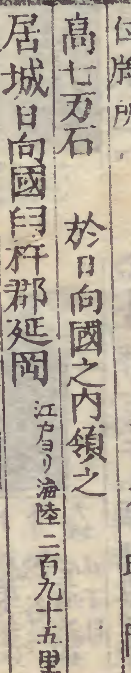 位牌所
高七万石 於日向國之内領之
居城日向國臼杵郡延岡 江戸ヨリ海陸二百九十五里